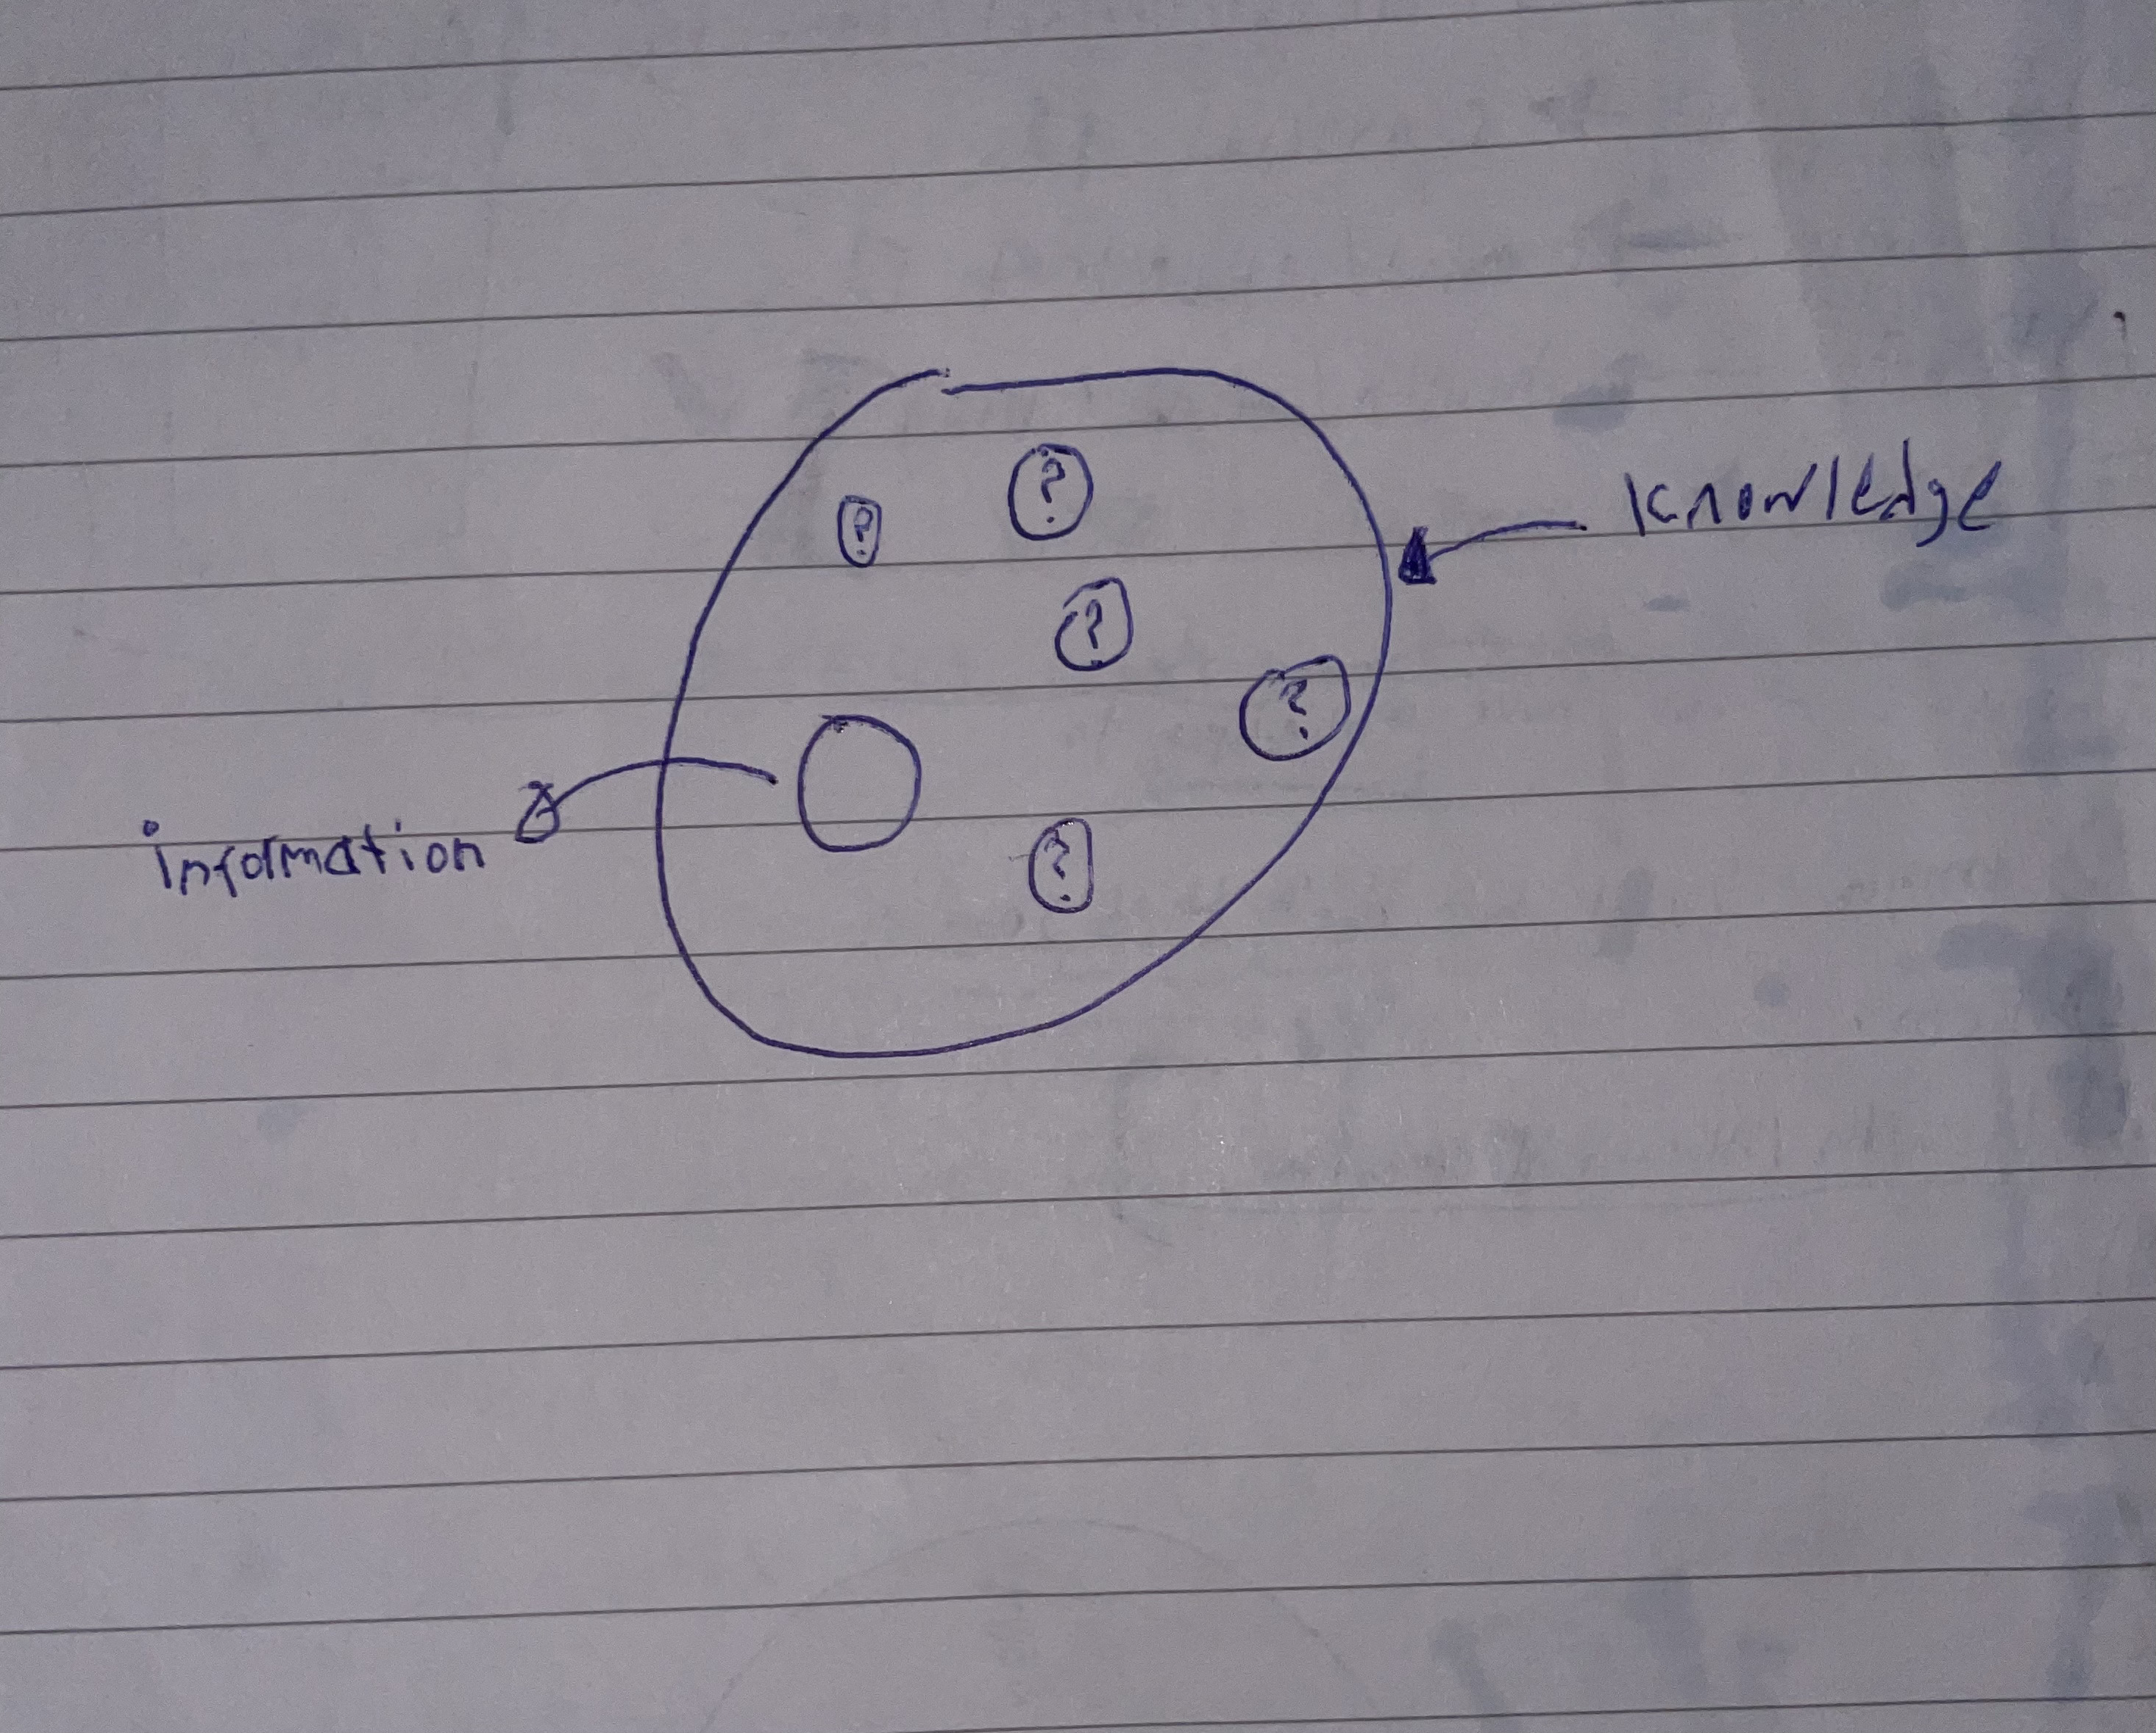 ?
?
knowledge
?
?
information
?